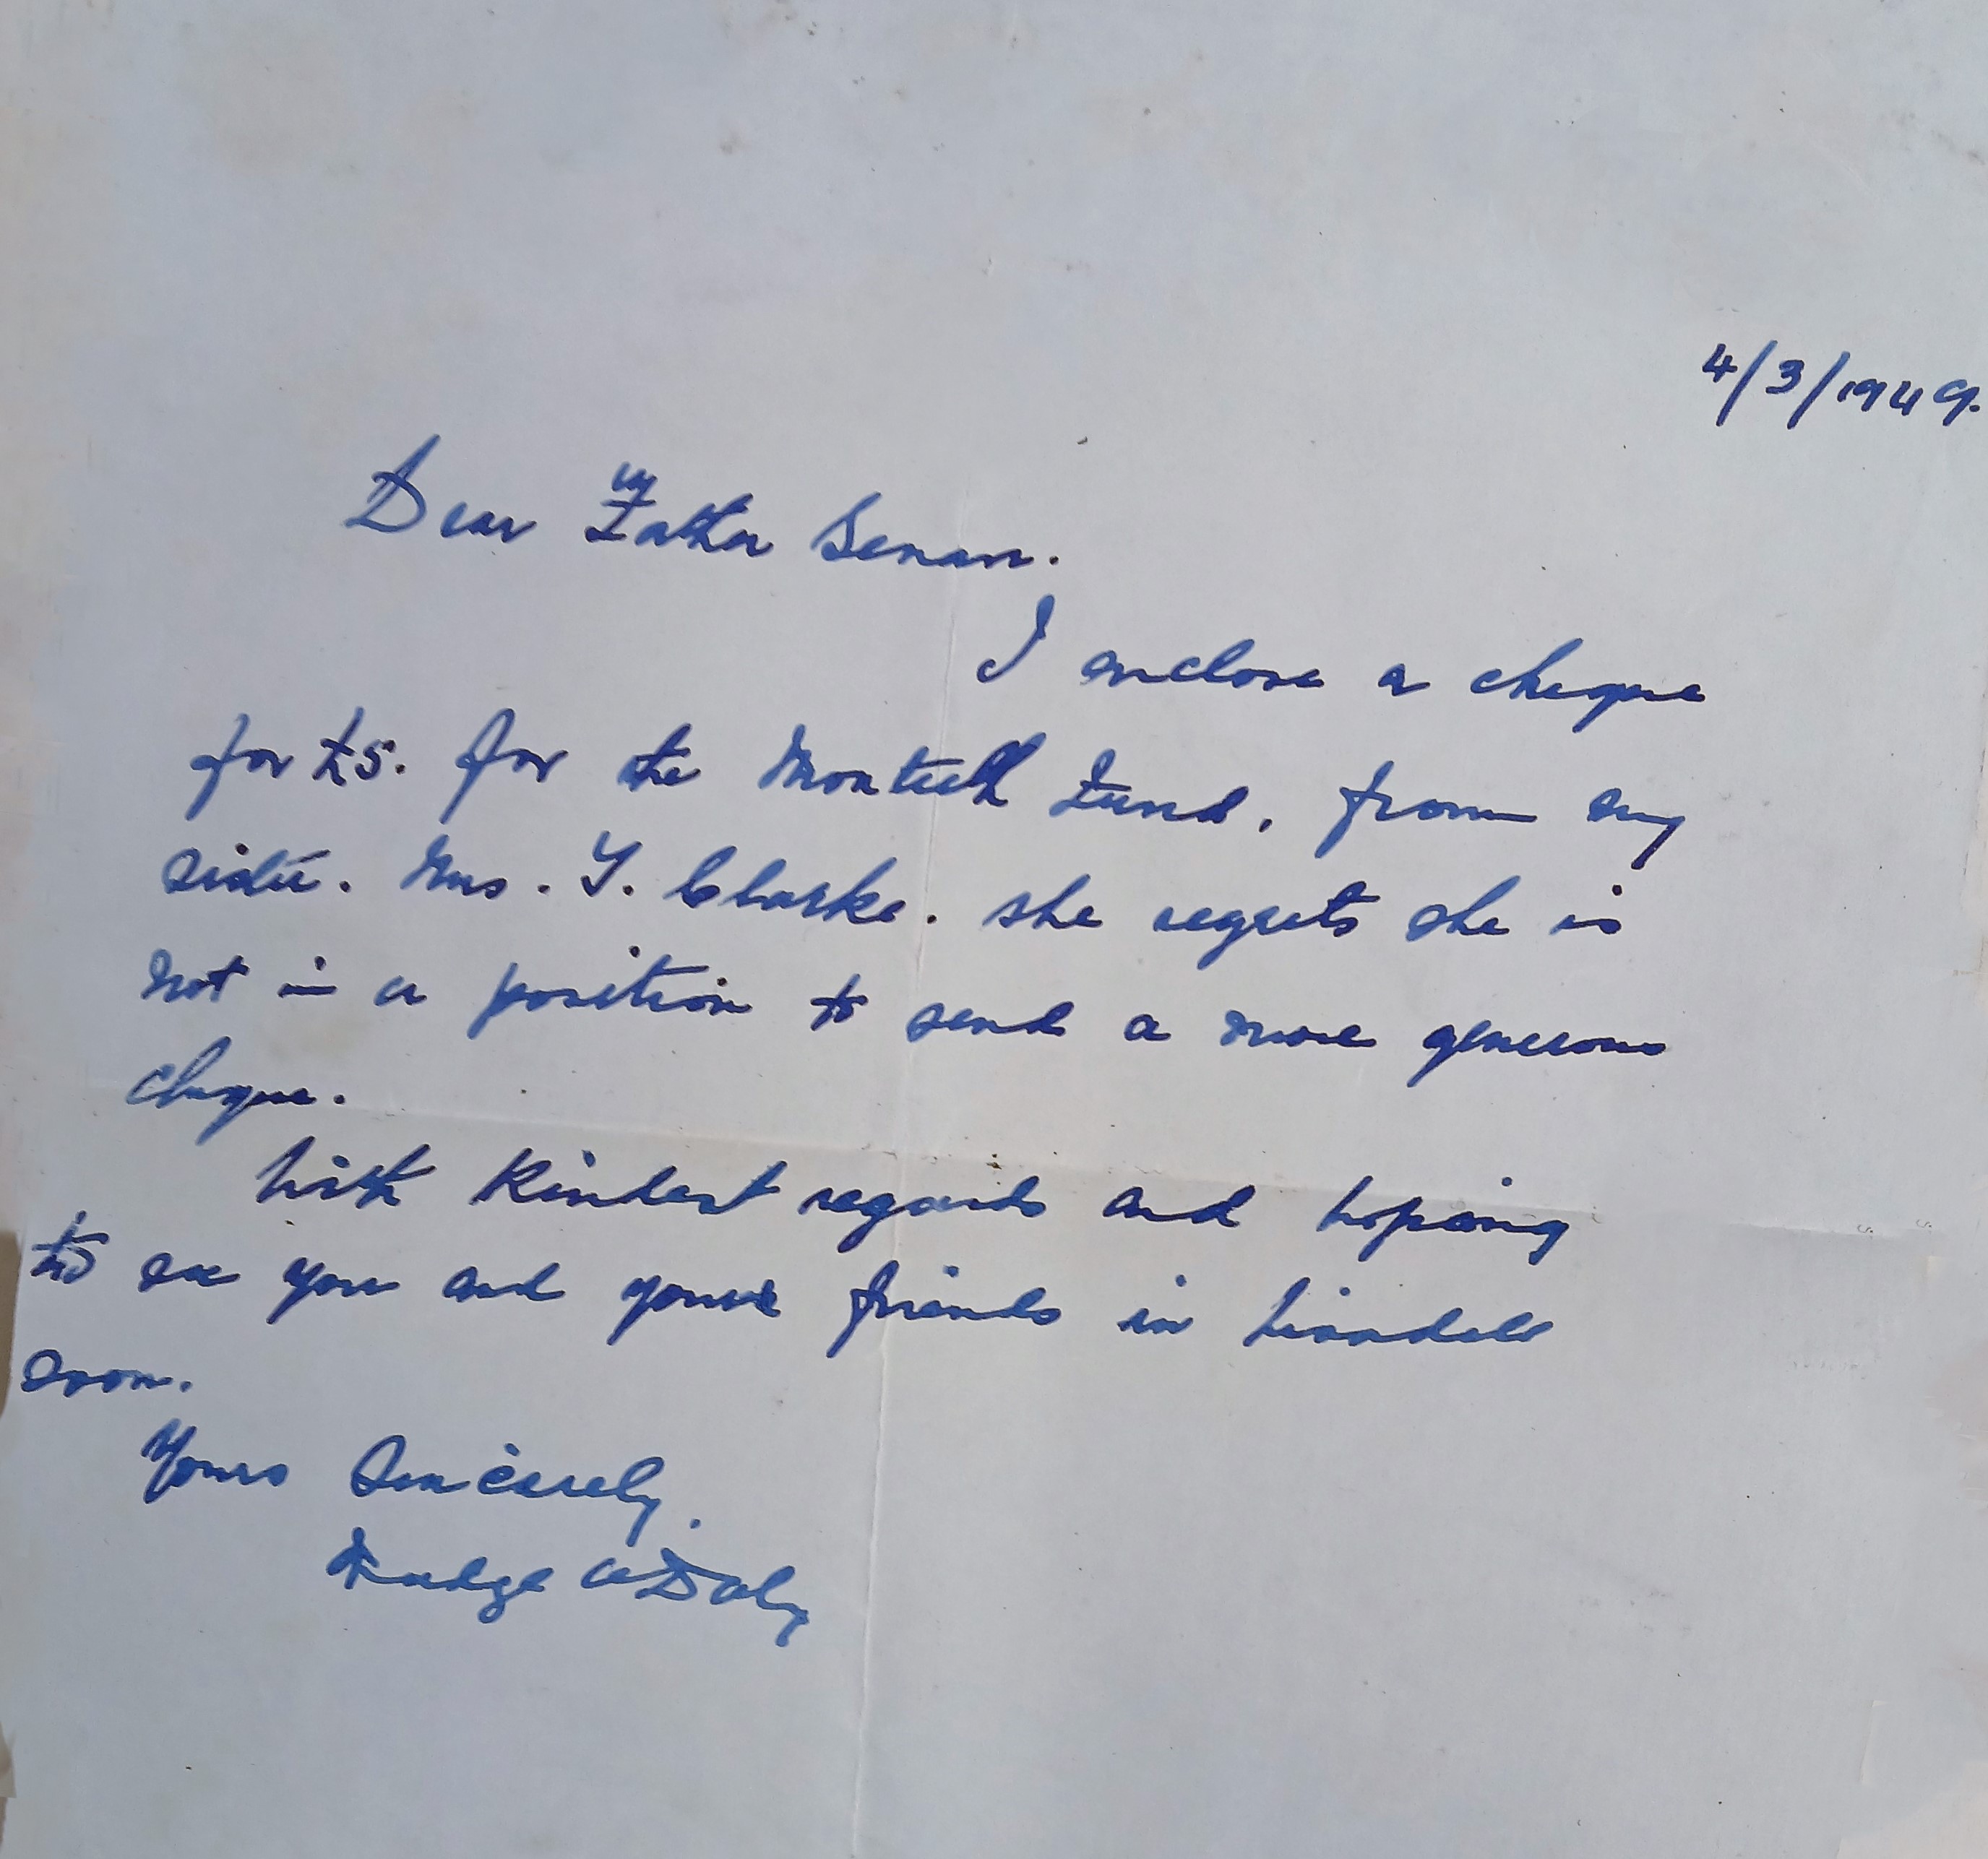 4/3/1949.
Dear Father Senan.
I enclose a cheque
for £5. for the Monteith Fund, from my
sister. Mrs. T. Clarke. she regrets she is
not in a position to send a more generous
cheque.
With Kindest regards and hoping
to see you and your friends in
soon.
Yours Sincerely.
Madge Daly